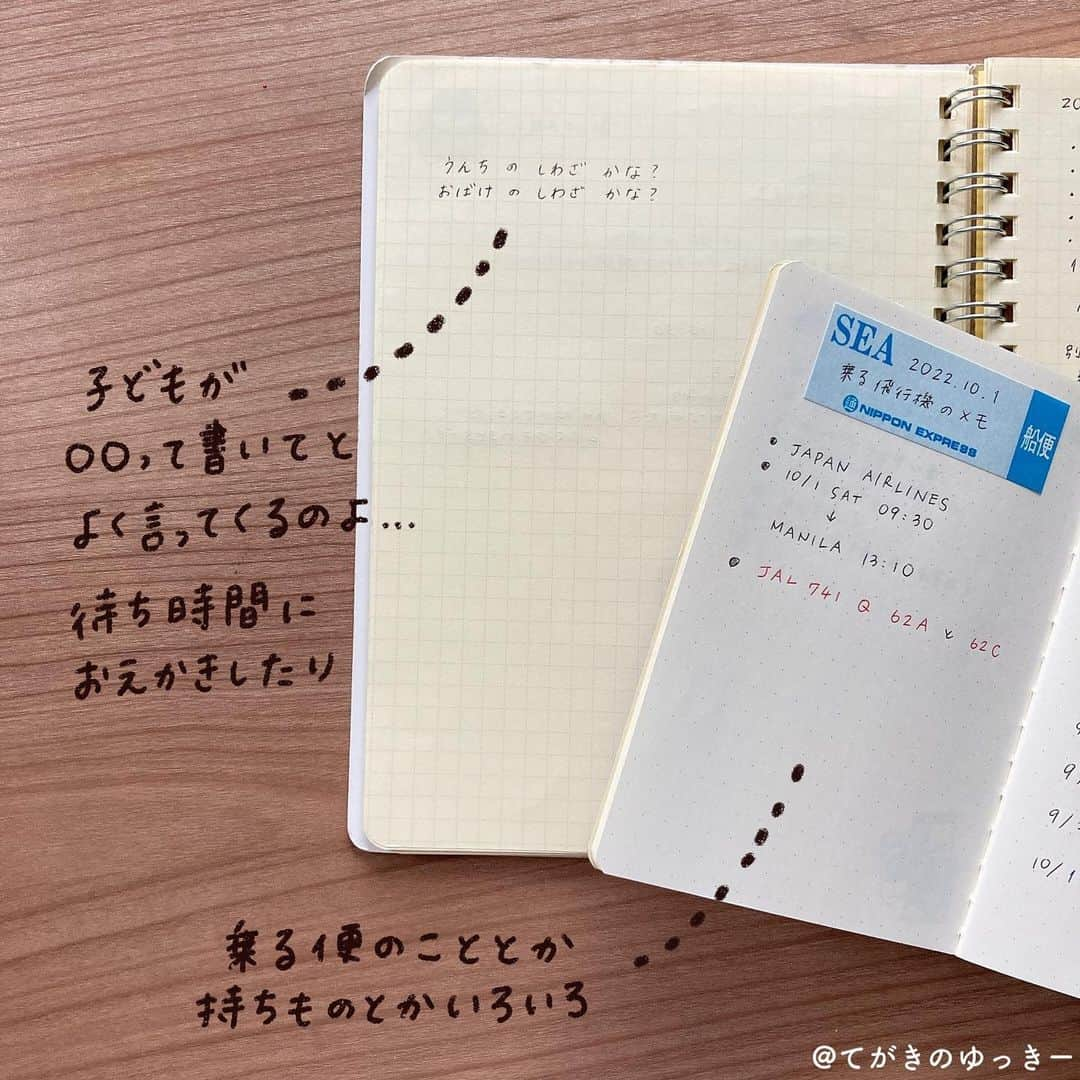 うんち の しわざ かな?
おばけ の しわざ かな?
子どもが
〇〇って書いてと
よく言ってくるのよ...
待ち時間に
おえかきしたり
20
SEA
2022.10.1
乗る飛行機のメモ
通 NIPPON EXPRESS
船便
・JAPAN AIRLINES
・10/1 SAT 09:30
↓
MANILA 13:10
・JAL 741 Q 62A と 62C
9/
9/
10/1
乗る便のこととか
持ちものとかいろいろ
@てがきのゆっきー